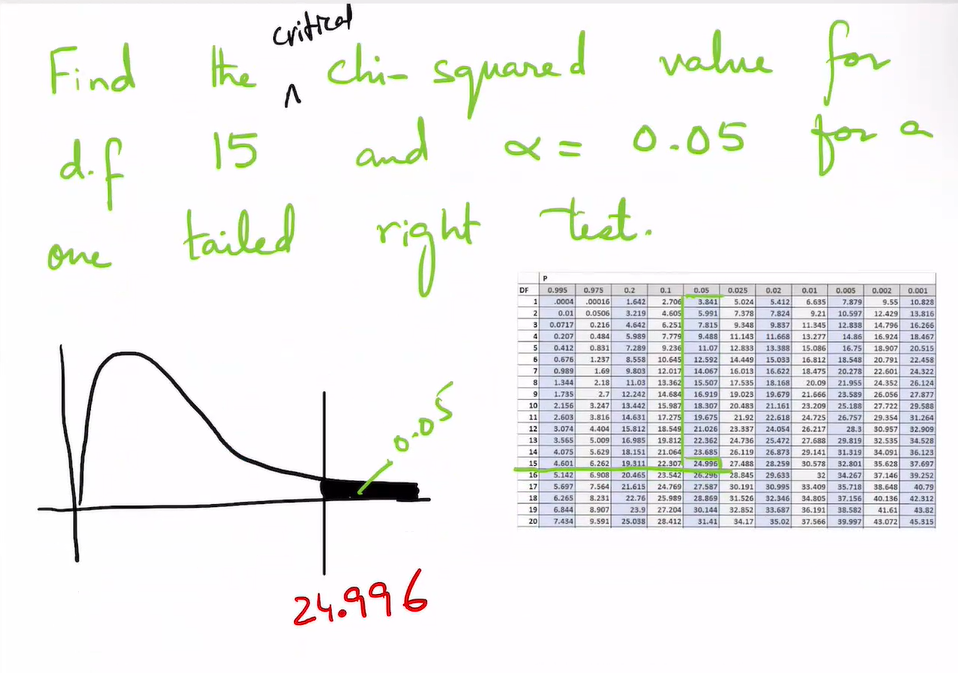 critical
Find the ^ chi-squared value for
d.f 15 and α = 0.05 for a
one tailed right test.
P
DF 0.995 0.975 0.2 0.1 0.05 0.025 0.02 0.01 0.005 0.002 0.001
1 .0004 .00016 1.642 2.706 3.841 5.024 5.412 6.635 7.879 9.55 10.828
2 0.01 0.0506 3.219 4.605 5.991 7.378 7.824 9.21 10.597 12.429 13.816
3 0.0717 0.216 4.642 6.251 7.815 9.348 9.837 11.345 12.838 14.796 16.266
4 0.207 0.484 5.989 7.779 9.488 11.143 11.668 13.277 14.86 16.924 18.467
5 0.412 0.831 7.289 9.236 11.07 12.833 13.388 15.086 16.75 18.907 20.515
6 0.676 1.237 8.558 10.645 12.592 14.449 15.033 16.812 18.548 20.791 22.458
7 0.989 1.69 9.803 12.017 14.067 16.013 16.622 18.475 20.278 22.601 24.322
8 1.344 2.18 11.03 13.362 15.507 17.535 18.168 20.09 21.955 24.352 26.124
9 1.735 2.7 12.242 14.684 16.919 19.023 19.679 21.666 23.589 26.056 27.877
10 2.156 3.247 13.442 15.987 18.307 20.483 21.161 23.209 25.188 27.722 29.588
11 2.603 3.816 14.631 17.275 19.675 21.92 22.618 24.725 26.757 29.354 31.264
12 3.074 4.404 15.812 18.549 21.026 23.337 24.054 26.217 28.3 30.957 32.909
13 3.565 5.009 16.985 19.812 22.362 24.736 25.472 27.688 29.819 32.535 34.528
14 4.075 5.629 18.151 21.064 23.685 26.119 26.873 29.141 31.319 34.091 36.123
15 4.601 6.262 19.311 22.307 24.996 27.488 28.259 30.578 32.801 35.628 37.697
16 5.142 6.908 20.465 23.542 26.296 28.845 29.633 32 34.267 37.146 39.252
17 5.697 7.564 21.615 24.769 27.587 30.191 30.995 33.409 35.718 38.648 40.79
18 6.265 8.231 22.76 25.989 28.869 31.526 32.346 34.805 37.156 40.136 42.312
19 6.844 8.907 23.9 27.204 30.144 32.852 33.687 36.191 38.582 41.61 43.82
20 7.434 9.591 25.038 28.412 31.41 34.17 35.02 37.566 39.997 43.072 45.315
0.05
24.996